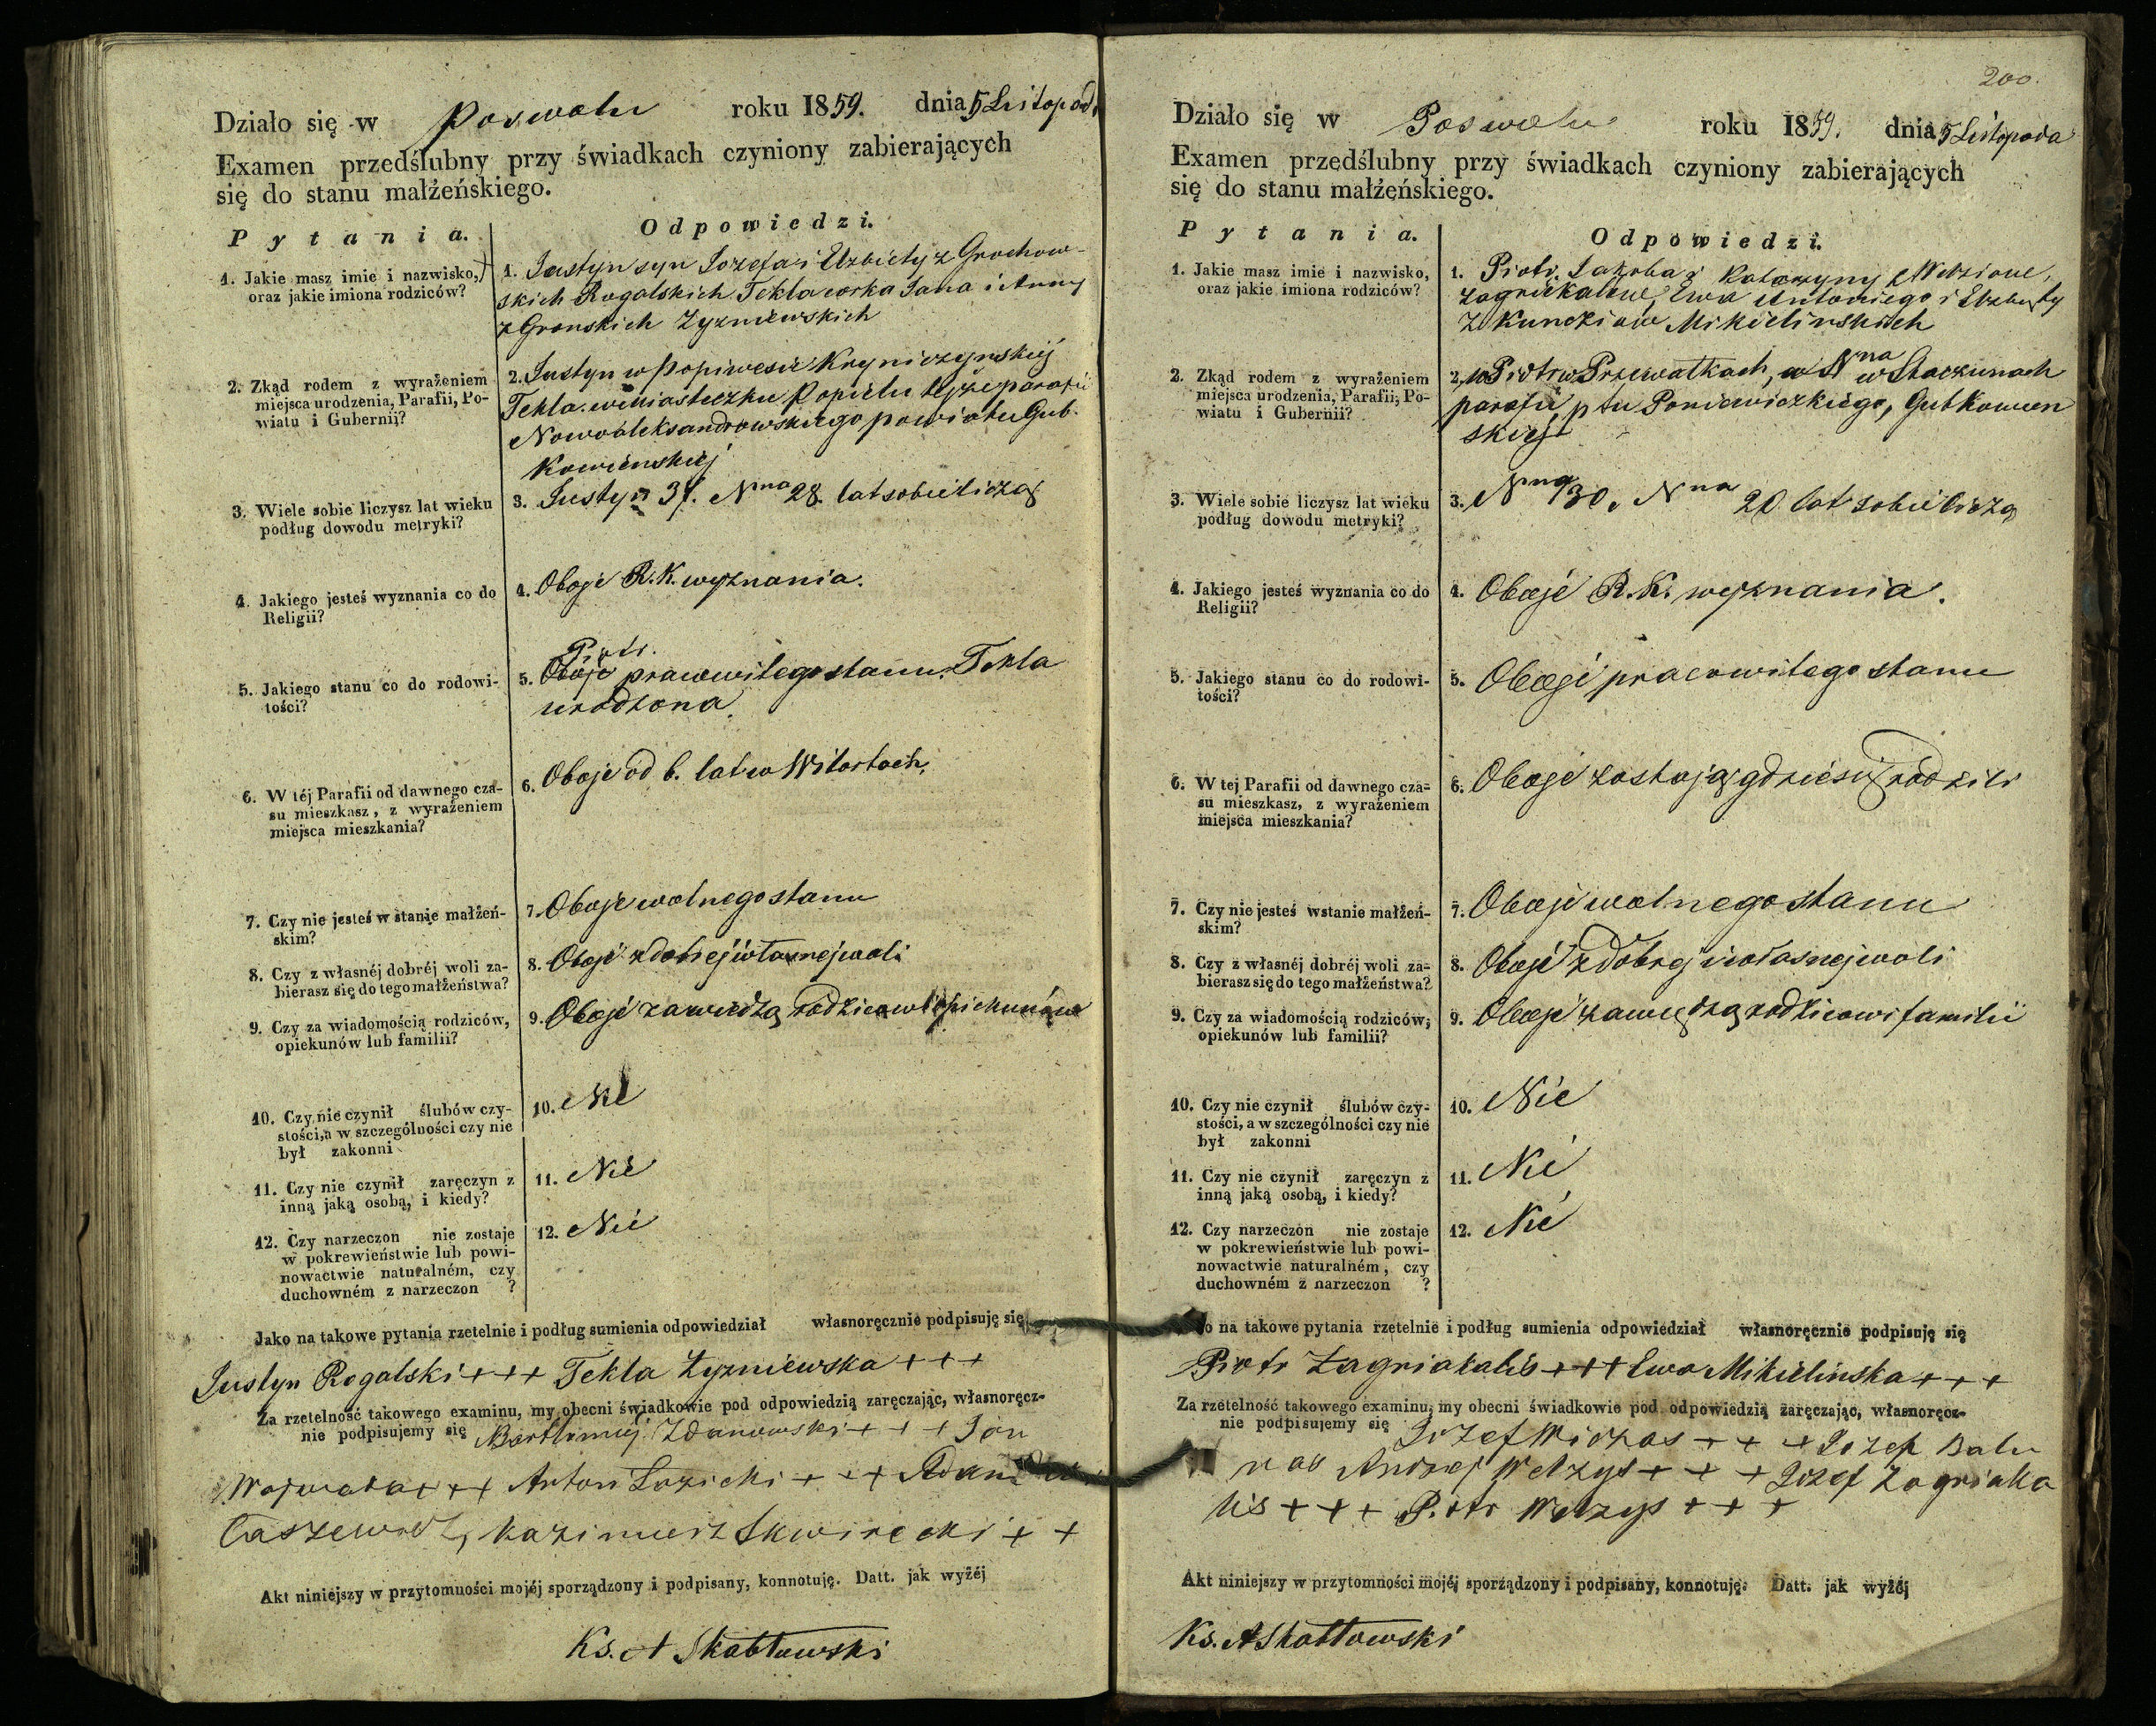 Działo się w Poswolu roku 1859. dnia 5 Listopad.
Examen przedślubny przy świadkach czyniony zabierających
się do stanu małżeńskiego.
Pytania.
Odpowiedzi.
1. Jakie masz imie i nazwisko,
oraz jakie imiona rodziców?
1. Justyn syn Jozefa i Elzbiety z Grochow-
skich Rogalskich Tekla corka Jana i Anny
z Gronskich Zyzniewskich
2. Zkąd rodem z wyrażeniem
miejsca urodzenia, Parafii, Po-
wiatu i Gubernii?
2. Justyn w Popiwesie Kryniczynskiéj
Tekla w miasteczku Popielu tejże parafii
Nowoaleksandrowskiego powiatu Gub.
Kowienskiej
3. Wiele sobie liczysz lat wieku
podług dowodu metryki?
3. Justyn 31. Nna 28. lat sobie liczą
4. Jakiego jesteś wyznania co do
Religii?
4. Oboje R.K. wyznania.
5. Jakiego stanu co do rodowi-
tości?
Piotr.
5. Oboje pracowitego stanu. Tekla
urodzona.
6. W téj Parafii od dawnego cza-
su mieszkasz, z wyrażeniem
miejsca mieszkania?
6. Oboje od 6. lat w Witortach.
7. Czy nie jesteś w stanie małżeń-
skim?
7. Oboje wolnego stanu
8. Czy z własnéj dobréj woli za-
bierasz się do tego małżeństwa?
8. Oboje z dobrej i własnej woli
9. Czy za wiadomością rodziców,
opiekunów lub familii?
9. Oboje za wiedzą rodzicow i opiekunów
10. Czy nie czynił ślubów czy-
stości, a w szczególności czy nie
był zakonni
10. Nie
11. Czy nie czynił zaręczyn z
inną jaką osobą, i kiedy?
11. Nie
12. Czy narzeczon nie zostaje
w pokrewieństwie lub powi-
nowactwie naturalném, czy
duchowném z narzeczon ?
12. Nie
Jako na takowe pytania rzetelnie i podług sumienia odpowiedział własnoręcznie podpisuję się
Justyn Rogalski +++ Tekla Zyzniewska +++
Za rzetelność takowego examinu, my obecni świadkowie pod odpowiedzią zaręczając, własnoręcz-
nie podpisujemy się Bartłomiej Zdanowski + + + Jan
Wojwoda +++ Anton Łozicki + + + Adam
Kazimierz Skwirecki + +
Akt niniejszy w przytomności mojéj sporządzony i podpisany, konnotuję. Datt. jak wyżéj
Ks. A Skabłowski
200.
Działo się w Poswolu roku 1859. dnia 5 Listopada
Examen przedślubny przy świadkach czyniony zabierających
się do stanu małżeńskiego.
Pytania.
Odpowiedzi.
1. Jakie masz imie i nazwisko,
oraz jakie imiona rodziców?
1. Piotr. Jakoba i Katarzyny z Wełziow.
Zagriekalow, Ewa Antoniego i Elzbiety
z Kuncziow Mikielinskich
2. Zkąd rodem z wyrażeniem
miejsca urodzenia, Parafii, Po-
wiatu i Gubernii?
2. Piotr w Przewałkach, a Nna w Staczunach
parafii, ptu Poniewiezkiego, Gub Kowien
skiej
3. Wiele sobie liczysz lat wieku
podług dowodu metryki?
3. Nny 30, Nna 20 lat sobie liczą
4. Jakiego jesteś wyznania co do
Religii?
4. Oboje R.K. wyznania.
5. Jakiego stanu co do rodowi-
tości?
5. Oboje pracowitego stanu
6. W tej Parafii od dawnego cza-
su mieszkasz, z wyrażeniem
miejsca mieszkania?
6. Oboje zostają gdzie się rodzili
7. Czy nie jesteś wstanie małżeń-
skim?
7. Oboje wolnego stanu
8. Czy z własnéj dobréj woli za-
bierasz się do tego małżeństwa?
8. Oboje z dobrej i własnej woli
9. Czy za wiadomością rodziców,
opiekunów lub familii?
9. Oboje za wiedzą rodzicow i familii
10. Czy nie czynił ślubów czy-
stości, a w szczególności czy nie
był zakonni
10. Nie
11. Czy nie czynił zaręczyn z
inną jaką osobą, i kiedy?
11. Nie
12. Czy narzeczon nie zostaje
w pokrewieństwie lub powi-
nowactwie naturalném, czy
duchowném z narzeczon ?
12. Nie
na takowe pytania rzetelnie i podług sumienia odpowiedział własnoręcznie podpisuję się
Piotr Zagriakalis +++ Ewa Mikielinska +++
Za rzetelność takowego examinu, my obecni świadkowie pod odpowiedzią zaręczając, własnoręcz-
nie podpisujemy się Jozef Widzas + + + Jozef Balu
nas Andrzej Wełzys + + + Jozef Zagriaka
lis + + + Piotr Wełzys + + +
Akt niniejszy w przytomności mojéj sporządzony i podpisany, konnotuję. Datt. jak wyżéj
Ks. A Skabłowski